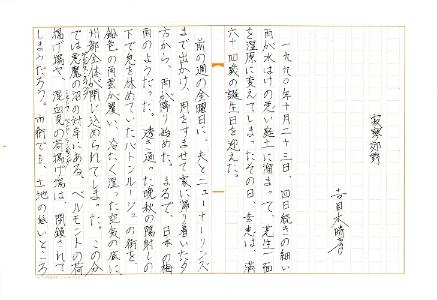 寂寥郊野
吉目木晴彦
一九九〇年十月二十三日、四日続きの細い
雨が水はけの悪い粘土に溜まって、芝生一面
を湿原に変えてしまったその日、幸恵は満
六十四歳の誕生日を迎えた。
前の週の金曜日に、夫とニューオーリンズ
まで出かけ、用をすませて家に帰り着いた夕
方から、雨が降り始めた。まるで、日本の梅
雨のようだった。透き通った晩秋の陽射しの
下で息を休めていたバトンルージュの街を、
鉛色の雨雲が覆い、冷たく湿った空気の底に
州都全体が閉じ込められてしまった。この分
では悪魔の沼の対岸にある、ベルモントの荷
揚げ場や、混血児の荷揚げ場は、閉鎖されて
しまうだろう。市街でも土地の低いところ